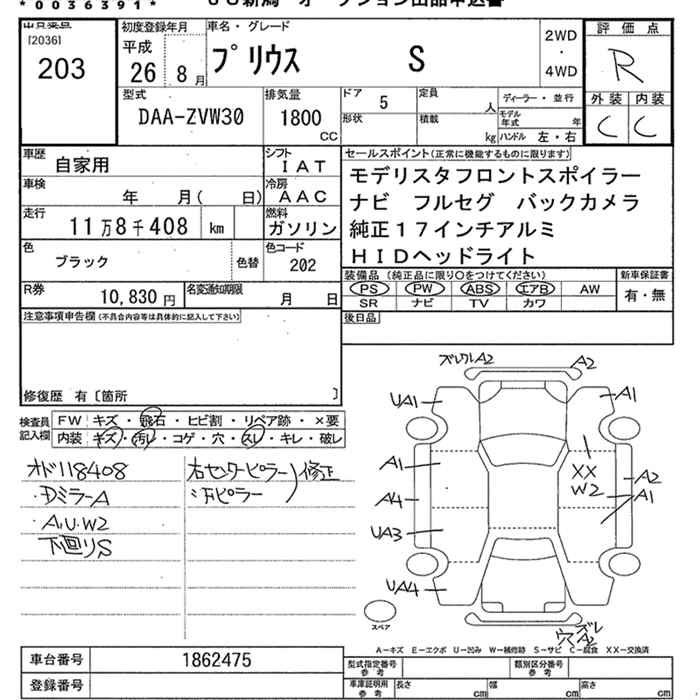 *0036391*
出品票
[2036]
203
初度登録年月
平成
26 8月
車名・グレード
プリウス S
2WD
・
4WD
評価点
R
外装 内装
C C
型式
DAA-ZVW30
排気量
1800
CC
ドア 5
形状
定員 人
積載 kg
ディーラー・並行
モデル年式 年
ハンドル 左・右
車歴
自家用
シフト
IAT
車検
年 月( 日)
冷房
AAC
走行
11万8千408 km
燃料
ガソリン
色
ブラック
色替
色コード
202
R券
10,830円
名変通知期限
月 日
セールスポイント(正常に機能するものに限ります)
モデリスタフロントスポイラー
ナビ フルセグ バックカメラ
純正17インチアルミ
HIDヘッドライト
装備品(純正品に限り○をつけてください)
PS PW ABS エアB AW
SR ナビ TV カワ
新車保証書
有・無
後日品
注意事項申告欄(不具合内容等は具体的に記入して下さい)
修復歴 有〔箇所 〕
検査員
記入欄
FW キズ・飛石・ヒビ割・リペア跡・×要
内装 キズ・汚レ・コゲ・穴・スレ・キレ・破レ
オド118408
・Dミラ-A
・A.U.W2
下廻りS
右センターピラー
〃Fピラー
修正
ズレワレA2
A2
UA1
A1
A1
XX
W2
A2
A1
A4
UA3
UA4
スペア
穴
ズレ
A2
A-キズ E-エクボ U-凹み W-補修跡 S-サビ C-腐食 XX-交換済
車台番号
1862475
登録番号
型式指定番号
参考
類別区分番号
参考
車庫証明用
参考
長さ cm
幅 cm
高さ cm